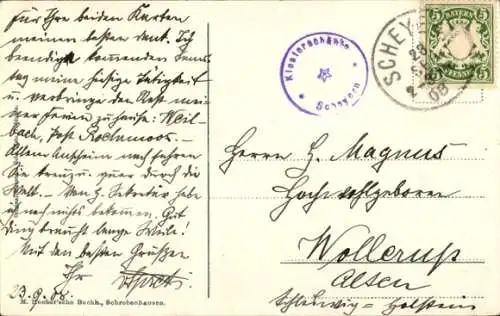 Für Ihre beiden Karten
meinen besten Dank. Ich
beendige kommenden Sams-
tag meine hiesige Tätigkeit
und verbringe den Rest mei-
ner Ferien zu Hause: Weil-
bach, Post Rochmoos.
Allem Anschein nach fahren
Sie kreuz u. quer durch die
Welt. – Von H. Sekretär habe
ich noch nichts bekommen. Gut
Ding braucht lange Weile!
Mit den besten Grüßen
Ihr
23.9.08.
M. Hueber'sche Buchh., Schrobenhausen.
Klosterschänke
Scheyern
SCHEYERN
23
08
BAYERN
5 5
PFENNIG
Herrn H. Magnus
Hochwohlgeboren
Wollerup
Alsen
Schleswig-Holstein